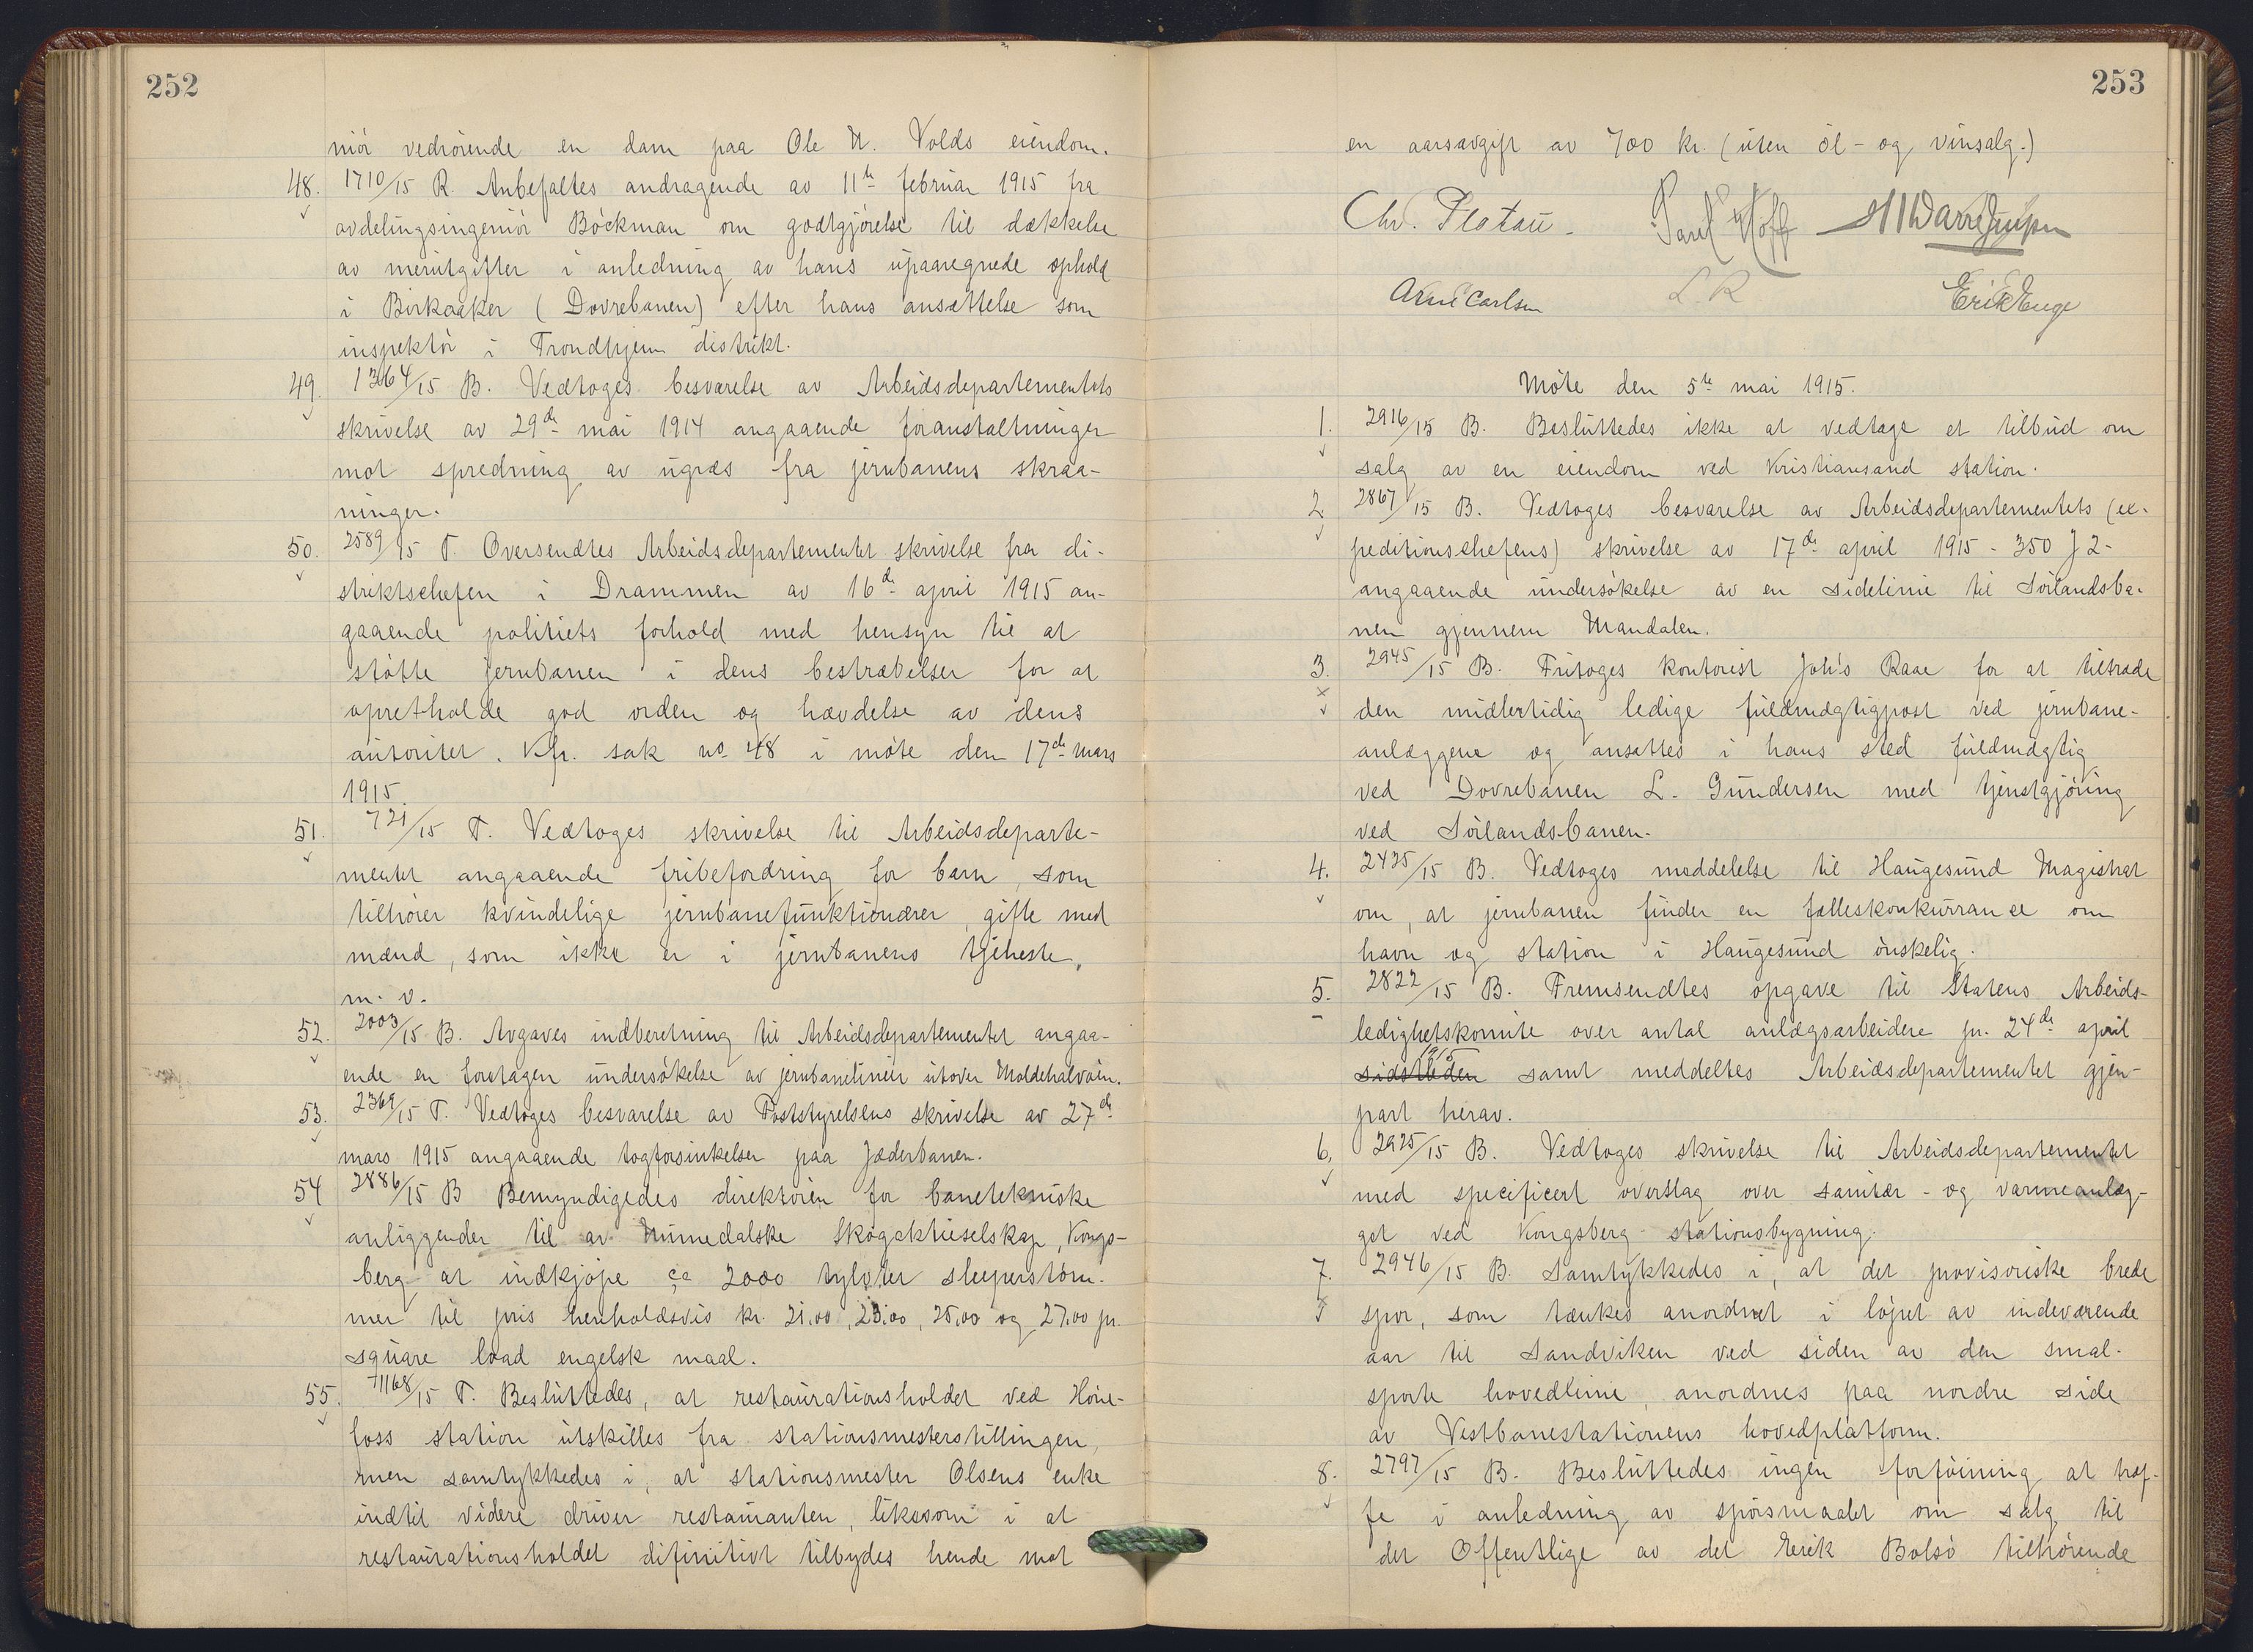 252
niör vedrörende en dam paa Ole N. Volds eiendom.
48. 1710/15 R. Anbefaltes andragende av 11te februar 1915 fra
avdelingsingeniör Böckman om godtgjörelse til dækkelse
av merutgifter i anledning av hans upaaregnede ophold
i Birkaaker (Dovrebanen) efter hans ansættelse som
inspektör i Trondhjem distrikt.
49. 1364/15 B. Vedtoges besvarelse av Arbeidsdepartementets
skrivelse av 29de mai 1914 angaaende foranstaltninger
mot spredning av ugræs fra jernbanens skraa-
ninger.
50. 2589/15 T. Oversendtes Arbeidsdepartementet skrivelse fra di-
striktschefen i Drammen av 16de april 1915 an-
gaaende politiets forhold med hensyn til at
støtte jernbanen i dens bestræbelser for at
opretholde god orden og hævdelse av dens
autoritet. Kfr. sak no 48 i möte den 17de mars
1915.
51. 721/15 T. Vedtoges skrivelse til Arbeidsdeparte-
mentet angaaende fribefordring for barn, som
tilhörer kvindelige jernbanefunktionærer, gifte med
mænd, som ikke er i jernbanens tjeneste,
m. v.
52. 2003/15 B. Avgaves indberetning til Arbeidsdepartementet angaa-
ende en foretagen undersökelse av jernbanelinier utover Moldehalvöin.
53. 2369/15 T. Vedtoges besvarelse av Poststyrelsens skrivelse av 27de
mars 1915 angaaende togforsinkelser paa Jæderbanen.
54 2886/15 B Bemyndigedes direktören for banetekniske
anliggender til av Numedalske Skogaktieselskap, Kongs-
berg at indkjöpe ca 2000 tylvter sleeperstöm-
mer til pris henholdsvis kr. 21,00, 23,00, 25,00 og 27,00 pr.
square load engelsk maal.
55. 1168/15 T. Besluttedes, at restaurationsholdet ved Höne-
foss station utskilles fra stationsmesterstillingen,
men samtykkedes i, at stationsmester Olsens enke
indtil videre driver restauranten, likesom i at
restaurationsholdet difinitivt tilbydes hende mot
253
en aarsavgift av 700 kr. (uten öl- og vinsalg.)
Chr. Platou. Paul Hoff
Arne Carlsen L. R Erik Enge
Möte den 5te mai 1915.
1. 2916/15 B. Besluttedes ikke at vedtage et tilbud om
salg av en eiendom ved Kristiansand station.
2 2867/15 B. Vedtoges besvarelse av Arbeidsdepartementets (ex-
peditionschefens) skrivelse av 17de april 1915 - 350 J 2-
angaaende undersökelse av en sidelinie til Sörlandsba-
nen gjennem Mandalen.
3. 2945/15 B. Fritoges kontorist Joh's Raae for at tiltræde
den midlertidig ledige fuldmægtigpost ved jernbane-
anlæggene og ansattes i hans sted fuldmægtig
ved Dovrebanen L. Gundersen med tjenstgjöring
ved Sörlandsbanen.
4. 2425/15 B. Vedtoges meddelelse til Haugesund Magistrat
om, at jernbanen finder en fælleskonkurranse om
havn og station i Haugesund önskelig.
5. 2822/15 B. Fremsendtes opgave til Statens Arbeids-
ledighetskomite over antal anlægsarbeidere pr. 24de april
1915
sidstleden samt meddeltes Arbeidsdepartementet gjen-
part herav.
6. 2925/15 B. Vedtoges skrivelse til Arbeidsdepartementet
med specificert overslag over sanitær- og varmeanlæg-
get ved Kongsberg stationsbygning.
7. 2946/15 B. Samtykkedes i, at det provisoriske brede
spor, som tænkes anordnet i löpet av indeværende
aar til Sandviken ved siden av den smal-
sporte hovedlinie, anordnes paa nordre side
av Vestbanestationens hovedplatform.
8. 2797/15 B. Besluttedes ingen forföining at træf-
fe i anledning av spörsmaalet om salg til
det Offentlige av det Eerik Bolsö tilhörende